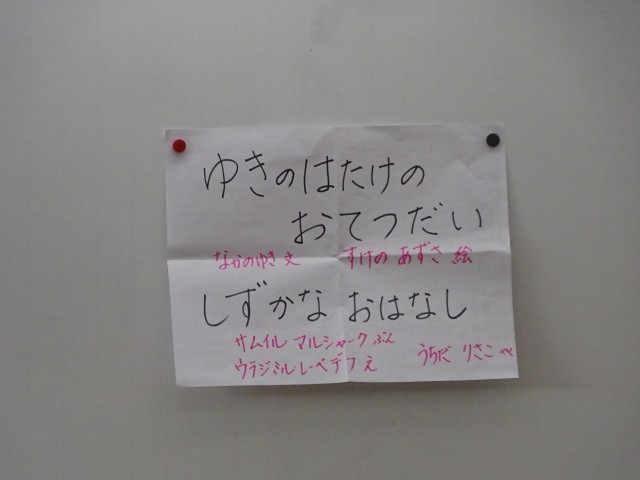 ゆきのはたけの
おてつだい
なかのゆき 文 すけの あずさ 絵
しずかな おはなし
サムイル マルシャーク ぶん
ウラジミル レーベデフ え うちだ りさこ やく